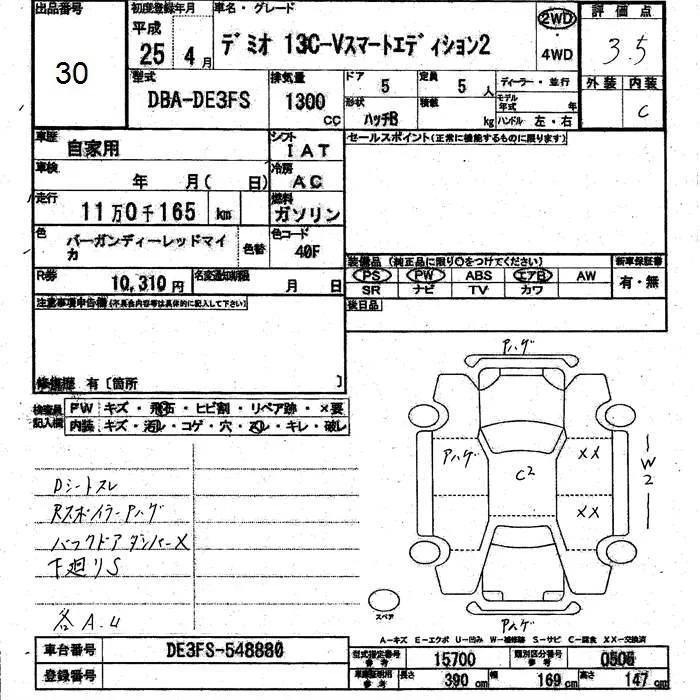 出品番号
30
初度登録年月
平成
25年 4月
車名・グレード
デミオ 13C-Vスマートエディション2
2WD
・
4WD
評価点
3.5
外装 内装
C
型式
DBA-DE3FS
排気量
1300
CC
ドア
5
定員
5人
形状
ハッチB
積載
kg
ディーラー・並行
モデル
年式
年
ハンドル 左・右
車歴
自家用
シフト
IAT
車検
年 月( 日)
冷房
AC
走行
11万0千165 km
燃料
ガソリン
色
バーガンディーレッドマイ
カ
色替
色コード
40F
R券
10,310円
名変通知期限
月 日
セールスポイント(正常に機能するものに限ります)
装備品(純正品に限り○をつけてください)
PS PW ABS エアB AW
SR ナビ TV カワ
新車保証書
有・無
後日品
注意事項申告欄(不具合内容等は具体的に記入して下さい)
修復歴 有〔箇所 〕
検査員
記入欄
PW キズ・飛石・ヒビ割・リペア跡・×要
内装 キズ・汚れ・コゲ・穴・スレ・キレ・破レ
Dシートスレ
Rスポイラーアハゲ
バックドアダンパー×
下廻りS
各A.U
アハゲ
アハゲ
C2
XX
XX
W2
アハゲ
スペア
A-キズ E-エクボ U-凹み W-補修跡 S-サビ C-腐食 XX-交換済
車台番号
DE3FS-548880
登録番号
型式指定番号
参考
15700
類別区分番号
参考
0506
車輌証明用
参考
長さ
390cm
幅
169cm
高さ
147cm